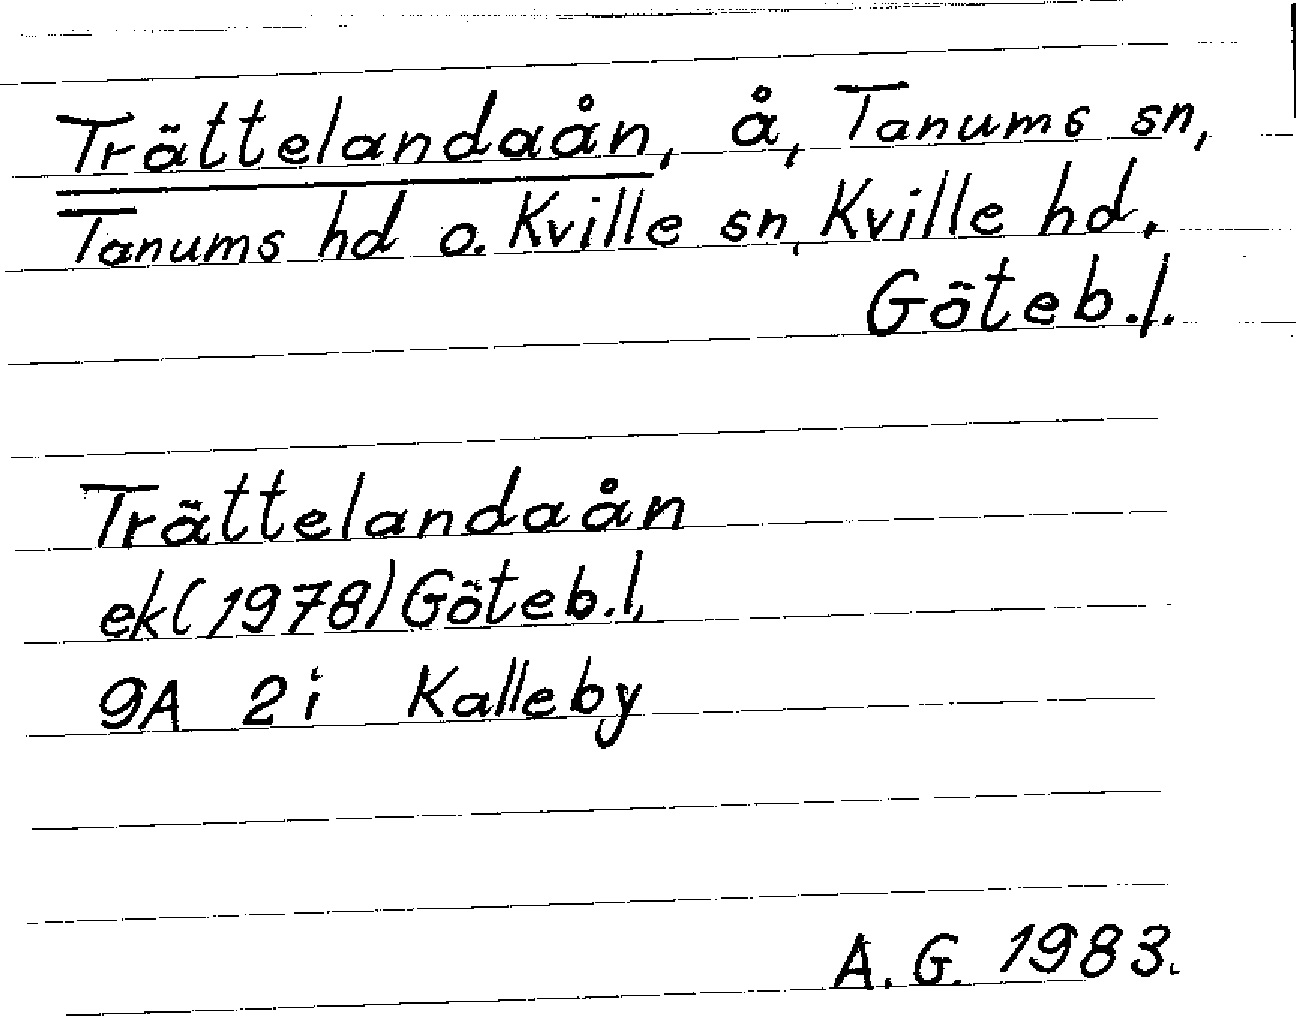 Trättelandaån, å, Tanums sn,
Tanums hd o. Kville sn, Kville hd,
Göteb.l.
Trättelandaån
ek(1978)Göteb.l,
9A 2i Kalleby
A.G. 1983.